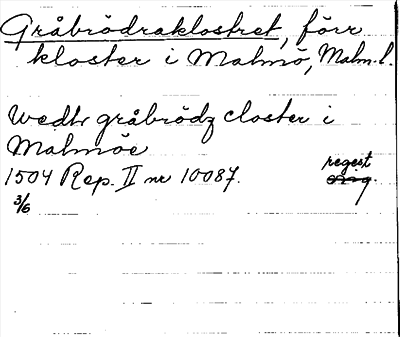 Gråbrödraklostret, förr
kloster i Malmö, Malm.l.
Wedhr gråbrödz closter i
Malmöe
1504 Rep. II nr 10087. regest
3/6 orig.